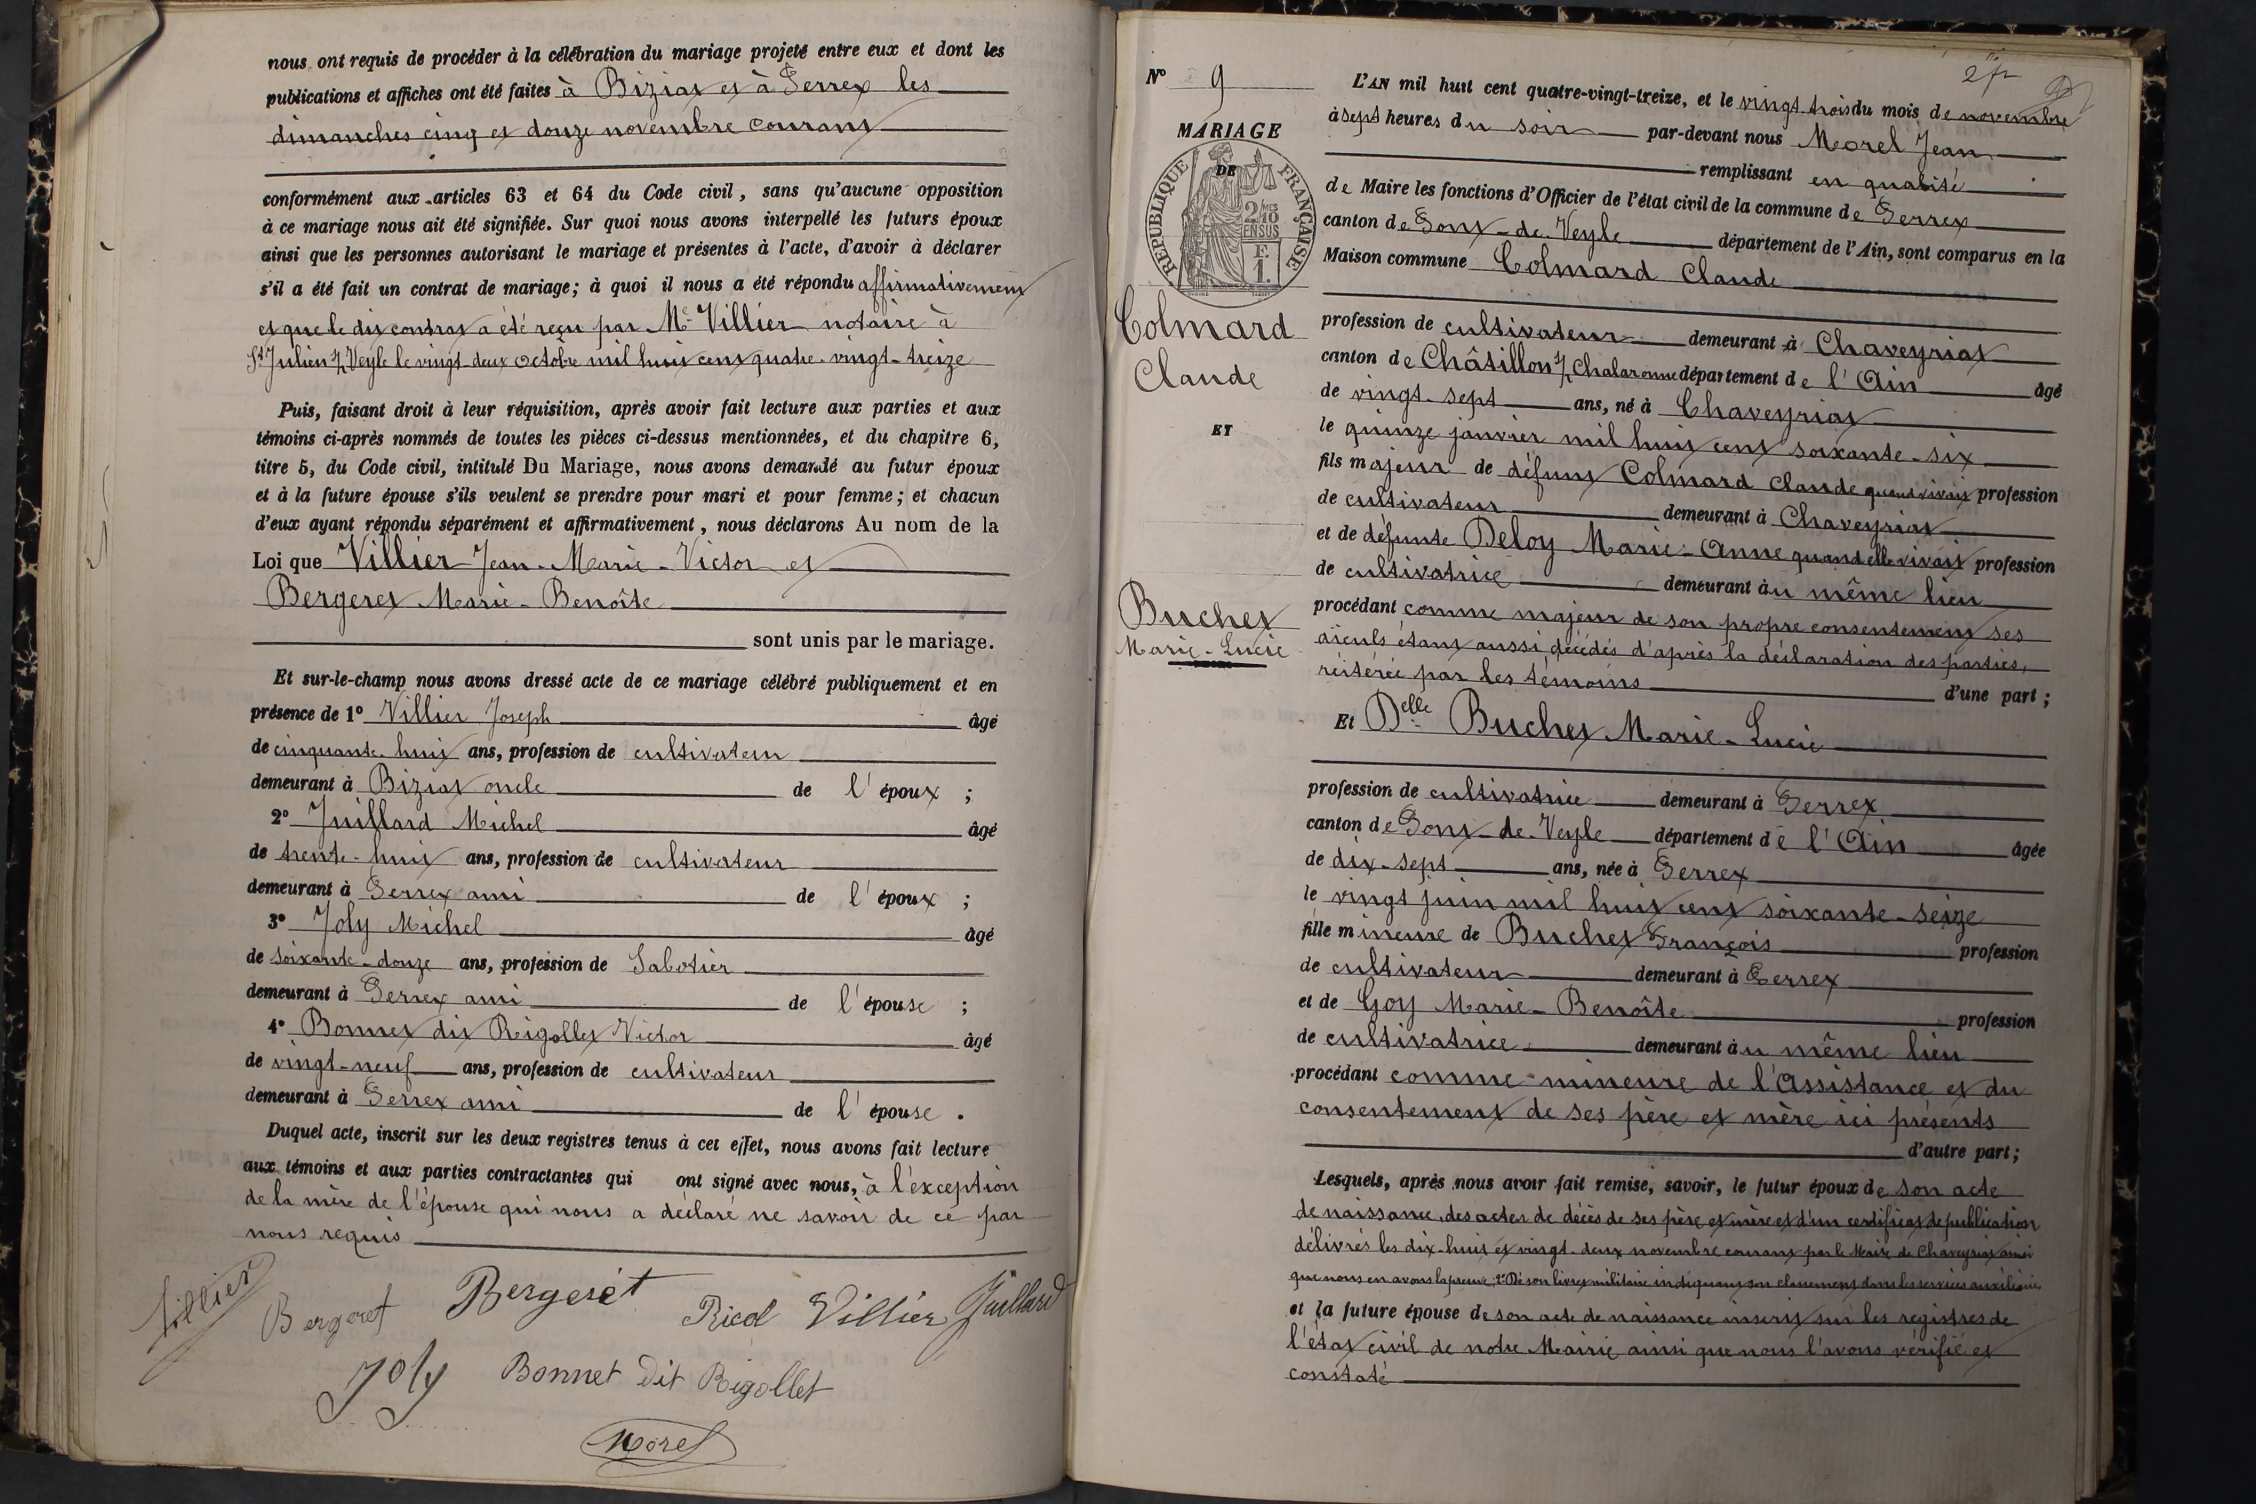 nous ont requis de procéder à la célébration du mariage projeté entre eux et dont les
publications et affiches ont été faites à Biziat et à Perrex les
dimanches cinq et douze novembre courant
conformément aux articles 63 et 64 du Code civil, sans qu'aucune opposition
à ce mariage nous ait été signifiée. Sur quoi nous avons interpellé les futurs époux
ainsi que les personnes autorisant le mariage et présentes à l'acte, d'avoir à déclarer
s'il a été fait un contrat de mariage; à quoi il nous a été répondu affirmativement
et que le dit contrat a été reçu par Me Villier notaire à
St Julien s/ Veyle le vingt-deux octobre mil huit cent quatre-vingt-treize
Puis, faisant droit à leur réquisition, après avoir fait lecture aux parties et aux
témoins ci-après nommés de toutes les pièces ci-dessus mentionnées, et du chapitre 6,
titre 5, du Code civil, intitulé Du Mariage, nous avons demandé au futur époux
et à la future épouse s'ils veulent se prendre pour mari et pour femme; et chacun
d'eux ayant répondu séparément et affirmativement, nous déclarons Au nom de la
Loi que Villier Jean-Marie-Victor et
Bergeret Marie-Benoîte
sont unis par le mariage.
Et sur-le-champ nous avons dressé acte de ce mariage célébré publiquement et en
présence de 1º Villier Joseph âgé
de cinquante-huit ans, profession de cultivateur
demeurant à Biziat oncle de l'époux ;
2º Juillard Michel âgé
de trente-huit ans, profession de cultivateur
demeurant à Perrex ami de l'époux ;
3º Joly Michel âgé
de soixante-douze ans, profession de Sabotier
demeurant à Perrex ami de l'épouse ;
4º Bonnet dit Rigollet Victor âgé
de vingt-neuf ans, profession de cultivateur
demeurant à Perrex ami de l'épouse .
Duquel acte, inscrit sur les deux registres tenus à cet effet, nous avons fait lecture
aux témoins et aux parties contractantes qui ont signé avec nous, à l'exception
de la mère de l'épouse qui nous a déclaré ne savoir de ce par
nous requis
Villier
Bergeret
Bergeret
Ricol Villier Juillard
Joly Bonnet Dit Rigollet
Morel
Nº 9
MARIAGE
DE
RÉPUBLIQUE FRANÇAISE
2/10 EN SUS
F. 1.
Colmard
Claude
ET
Buchet
Marie-Lucie
2 fr
L'AN mil huit cent quatre-vingt-treize, et le vingt trois du mois de novembre
à sept heures du soir par-devant nous Morel Jean
remplissant en qualité
de Maire les fonctions d'Officier de l'état civil de la commune de Perrex
canton de Pont-de-Veyle département de l'Ain, sont comparus en la
Maison commune Colmard Claude
profession de cultivateur demeurant à Chaveyriat
canton de Châtillon s/ Chalaronne département de l'Ain âgé
de vingt-sept ans, né à Chaveyriat
le quinze janvier mil huit cent soixante-six
fils majeur de défunt Colmard Claude quand vivait profession
de cultivateur demeurant à Chaveyriat
et de défunte Deloy Marie-Anne quand elle vivait profession
de cultivatrice demeurant au même lieu
procédant comme majeur de son propre consentement ses
aïeuls étant aussi décédés d'après la déclaration des parties,
réitérée par les témoins d'une part ;
Et Delle Buchet Marie-Lucie
profession de cultivatrice demeurant à Perrex
canton de Pont-de-Veyle département de l'Ain âgée
de dix-sept ans, née à Perrex
le vingt juin mil huit cent soixante-seize
fille mineure de Buchet François profession
de cultivateur demeurant à Perrex
et de Goy Marie-Benoîte profession
de cultivatrice demeurant au même lieu
procédant comme mineure de l'Assistance et du
consentement de ses père et mère ici présents
d'autre part ;
Lesquels, après nous avoir fait remise, savoir, le futur époux de son acte
de naissance, des actes de décès de ses père et mère et d'un certificat de publication
délivrés les dix-huit et vingt-deux novembre courant par le Maire de Chaveyriat ainsi
que nous en avons la preuve, 2º De son livret militaire indiquant son classement dans les services auxiliaires
et la future épouse de son acte de naissance inscrit sur les registres de
l'état civil de notre Mairie ainsi que nous l'avons vérifié et
constaté